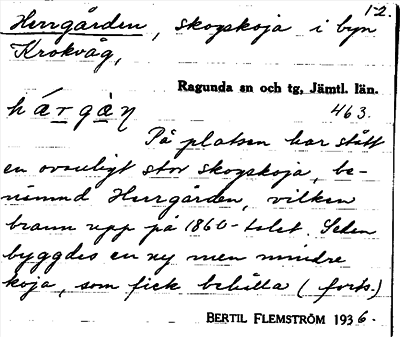 1-2.
Herrgården, skogskoja i byn
Krokvåg,
Ragunda sn och tg, Jämtl. län.
hárgàn̥
463.
På platsen har stått
en ovanligt stor skogskoja, be-
nämnd Herrgården, vilken
brann upp på 1860-talet. Seden
byggdes en ny men mindre
koja, som fick behålla (forts.)
BERTIL FLEMSTRÖM 1936.